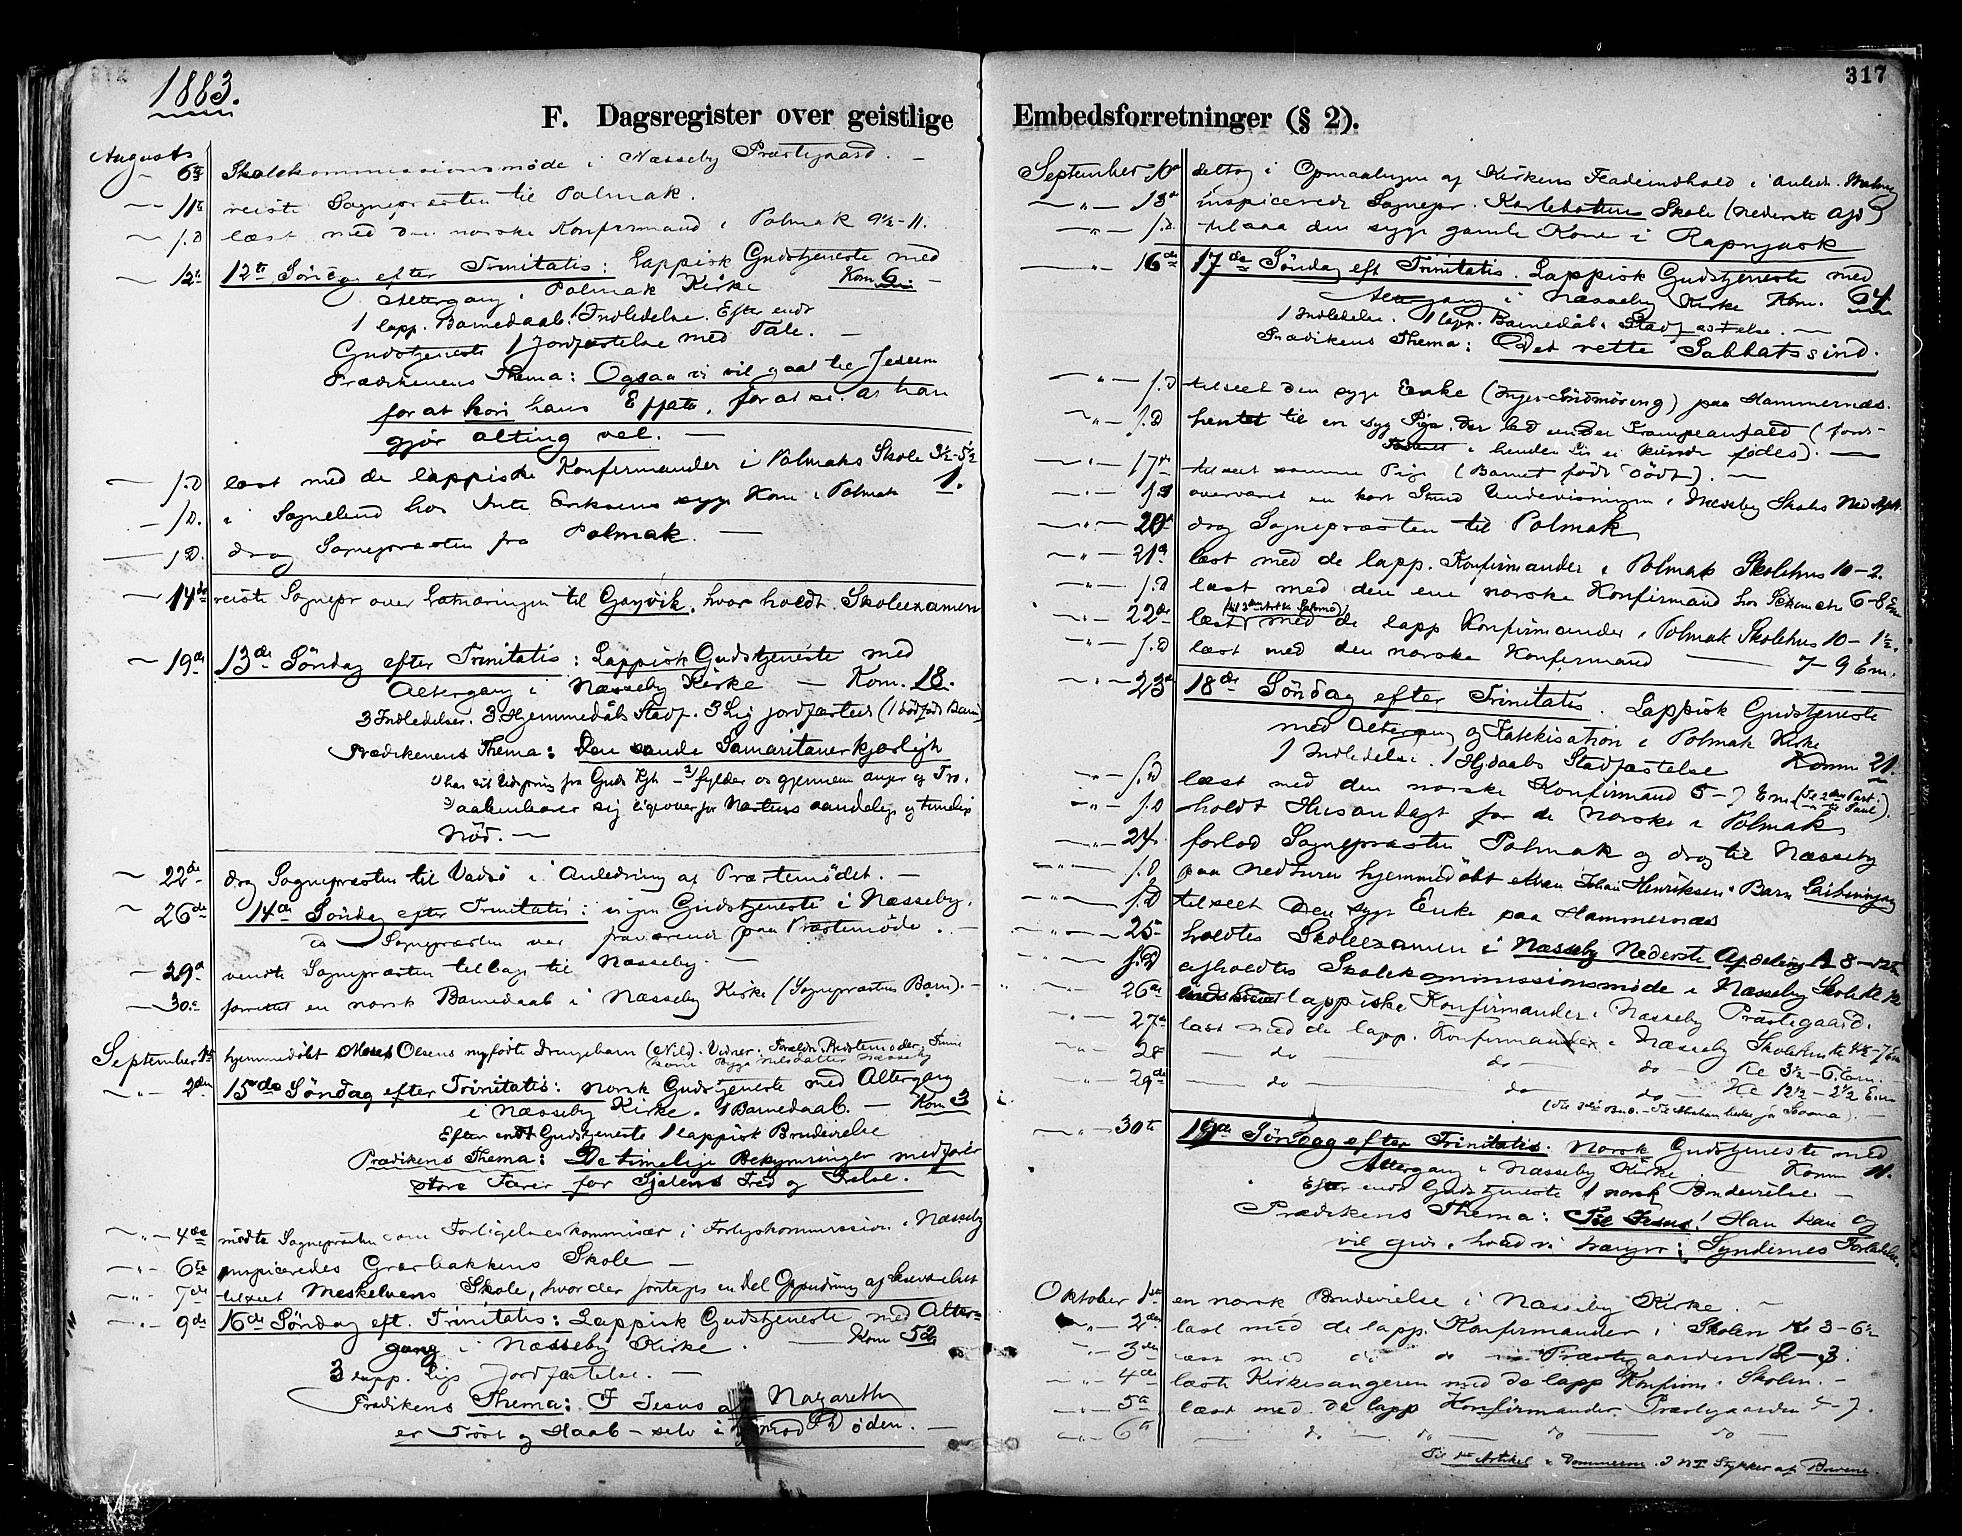 1883.
F. Dagsregister over geistlige
Augusts 6te Skolekommissionsmøde i Næsseby Præstegaard. —
— 11te reiste Sognepræsten til Polmak.
— s.D læst med den norske Konfirmand i Polmak 9½-11.
— 12te 12te Søndag efter Trinitatis: Lappisk Gudstjeneste med
Altergang i Polmak Kirke Kom 6 —
1 lapp. Barnedaab. 1 Indledelse. Efter endt
Gudstjeneste 1 Jordfæstelse med Tale. —
Prædikenens Thema: Ogsaa vi vil gaa til Jesum
for at høre hans Effata, for at se at han
gjør alting vel. —
— s.D læst med de lappiske Konfirmander i Polmaks Skole 3½-5½
— s.D. i Sognebud hos Eriksens syge Kone i Polmak 1.
— s.D. drog Sognepræsten fra Polmak. —
— 14de reiste Sognepr over til Gayvik, hvor holdt Skoleexamen
— 19de 13de Søndag efter Trinitatis: Lappisk Gudstjeneste med
Altergang i Næsseby Kirke — Kom. 18.
3 Indledelser. 3 Hjemmedåbs Stadf. 3 Lig jordfæsted (1 dødfødt Barn)
Prædikenens Thema: Den sande Samaritanerkjærligh
1) har sit Udspring fra Guds Kjh — 2) fylder os gjennem anger og Tro.
3) aabenbarer sig ligeoverfor Næstens aandelige og timelige
Nød. —
— 22de drog Sognepræsten til Vadsø i Anledning af Præstemødet. —
— 26de 14de Søndag efter Trinitatis: ingen Gudstjeneste i Næsseby,
da Sognepræsten var fraværende paa Præstemøde. —
— 29de vendte Sognepræsten tilbage til Næsseby. —
— 30te forrettet en norsk Barnedaab i Næsseby Kirke (Sognepræstens Barn). —
September 1ste hjemmedøbt Olsens nyfødte Drengebarn (Nils). Vidner: Forældr.
— 2den 15de Søndag efter Trinitatis: norsk Gudstjeneste med Altergang
i Næsseby Kirke. 1 Barnedaab. — Kom 3
Efter endt Gudstjeneste 1 lappisk Brudevielse
Prædikens Thema: De timelige Bekymringer medfører
store Farer for Sjælens Fred og Frelse. —
— 4de mødte Sognepræsten som Forligelseskommisær i Forligskommission i Næsseby
— 6te inspiceredes Græsbakkens Skole —
— 7de tilseet Meskelvens Skole, hvor der foretages en Del Oppudsning af
— 9de 16de Søndag eft. Trinitatis: Lappisk Gudstjeneste med Alter-
gang i Næsseby Kirke. — Kom 52
3 lapp. Ligs Jordfæstelse. —
Prædikens Thema: I Jesus af Nazareth
er Trøst og Haab — selv i Døden. —
317
Embedsforretninger (§ 2).
September deltog i Opmaalingen af Kirkens Fladeindhold i Anledn. Maling
— 13de inspicerede Sognepr. Karlebotens Skole (nederste Afd)
— s.D. tilsaa den syge gamle Kone i
— 16de 17de Søndag eft Trinitatis. Lappisk Gudstjeneste med
Altergang i Næsseby Kirke Kom. 64.
1 Indledelse. 1 lapp. Barnedåbs Stadfæstelse. —
Prædikens Thema: Det rette Sabbatssind.
— s.D tilseet den syge Enke paa Hammernæs.
— s.D hentet til en syg Pige, der led under Krampeanfald (
i hendes Liv ei kunde fødes). —
— 17de tilseet samme Pige (Barnet født dødt). —
— s.D overværet en kort Stund Undervisningen i Næsseby Skoles Ned. Afd.
— 20de drog Sognepræsten til Polmak
— 21de læst med de lapp. Konfirmander i Polmak Skolehus 10-2.
— s.D læst med den ene norske Konfirmand hos 6-8 Em
— 22de læst med de lapp Konfirmander i Polmak Skolehus 10-1½.
— s.D læst med den norske Konfirmand — 7-9 Em.
— 23de 18de Søndag efter Trinitatis. Lappisk Gudstjeneste
med Altergang og Katekisation i Polmak Kirke
1 Indledelse. 1 Hjdaabs Stadfæstelse Komm 21.
— s.D læst med den norske Konfirmand 5-7 Em
— s.D holdt Husandagt for de Norske i Polmak
— 24. forlod Sognepræsten Polmak og drog til Næsseby
— s.D paa Nedturen hjemmedøbt Johan Henriksens Barn
— s.D tilseet den syge Enke paa Hammernæs
— 25 holdtes Skoleexamen i Næsseby Nederste Afdeling
— s.D afholdtes Skolekommissionsmøde i Næsseby Skole
— 26de indskrevet lappiske Konfirmander i Næsseby Præstegaard.
— 27de læst med de lapp. Konfirmander i Næsseby Skolehus
— 28 — do — do — do — Kl 3½-6 Em.
— 29de — do — do — do — Kl 12½-2½ Em
— 30te 19de Søndag efter Trinitatis: Norsk Gudstjeneste med
Altergang i Næsseby Kirke Komm 11.
Efter endt Gudstjeneste 1 norsk Brudevielse —
Prædikens Thema: Til Jesus! Han kan og
vil give, hvad vi trænger: Syndernes Forladelse.
Oktober 1ste en norsk Brudevielse i Næsseby Kirke. —
— 2den læst med de lapp. Konfirmander i Skolen Kl 3-6½
— 3die læst med do do i Præstegaarden 12-3.
— 4de læste Kirkesangeren med de lapp Konfirm. i Skolen. —
— 5te læst med de lapp Konfirmander. Præstegaarden 4-7.
— 6te — do — do — do — do —
Til Artikel i Dommerne.